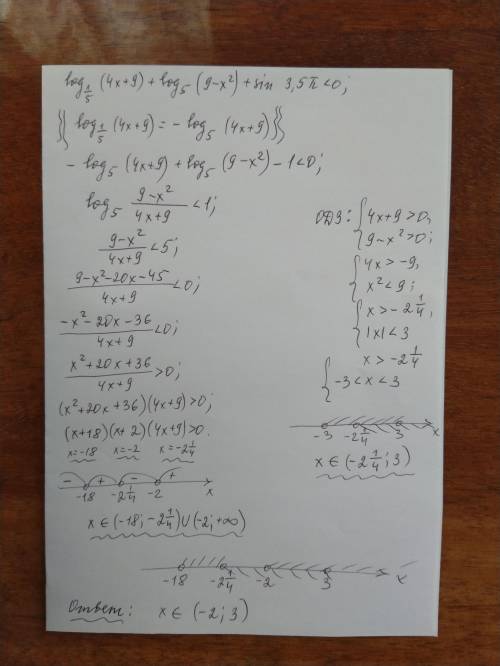 log_{1/5} (4x+9) + log_5 (9-x²) + sin 3,5π < 0;
{{ log_{1/5} (4x+9) = - log_5 (4x+9) }}
- log_5 (4x+9) + log_5 (9-x²) - 1 < 0;
log_5 \frac{9-x²}{4x+9} < 1;
\frac{9-x²}{4x+9} < 5;
\frac{9-x²-20x-45}{4x+9} < 0;
\frac{-x²-20x-36}{4x+9} < 0;
\frac{x²+20x+36}{4x+9} > 0;
(x²+20x+36)(4x+9) > 0;
(x+18)(x+2)(4x+9) > 0.
x=-18 x=-2 x=-2 1/4
- + - +
-18 -2 1/4 -2 x
x ∈ (-18; -2 1/4) ∪ (-2; +∞)
ОДЗ: { 4x+9 > 0,
9-x² > 0;
{ 4x > -9,
x² < 9;
{ x > -2 1/4,
|x| < 3
{ x > -2 1/4
-3 < x < 3
-3 -2 1/4 3 x
x ∈ (-2 1/4; 3)
-18 -2 1/4 -2 3 x
Ответ: x ∈ (-2; 3)